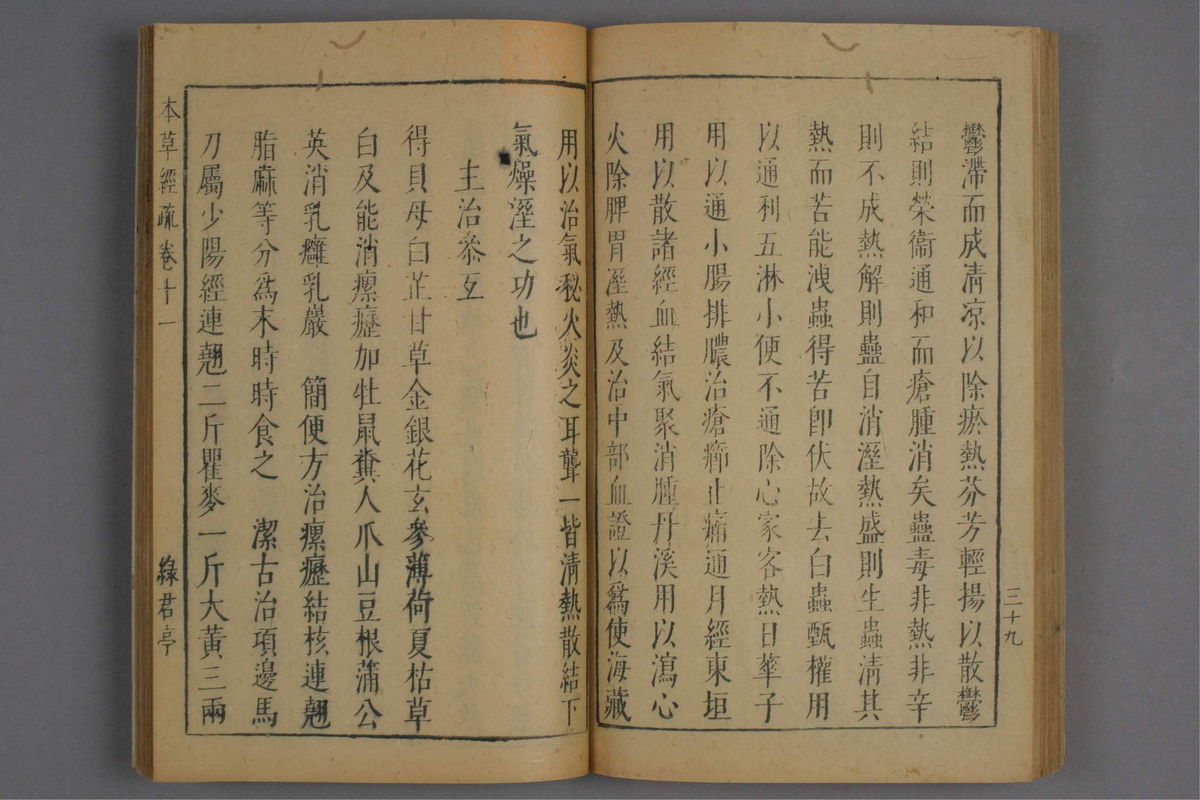 鬱滯而成清凉以除瘀熱芬芳輕揚以散鬱
結則榮衞通和而瘡腫消矣蠱毒非熱非辛
則不成熱解則蠱自消溼熱盛則生蟲淸其
熱而苦能洩蟲得苦卽伏故去白蟲甄權用
以通利五淋小便不通除心家客熱日華子
用以通小腸排膿治瘡癤止痛通月經東垣
用以散諸經血結氣聚消腫丹溪用以瀉心
火除脾胃溼熱及治中部血證以爲使海藏
三十九
用以治氣秘火炎之耳聾一皆淸熱散結下
氣燥溼之功也
主治叅互
得貝母白芷甘草金銀花玄參薄荷夏枯草
白及能消瘰癧加牡鼠糞人爪山豆根蒲公
英消乳癰乳巖　簡便方治瘰癧結核連翹
脂麻等分爲末時時食之　潔古治項邊馬
刀屬少陽經連翹二斤瞿麥一斤大黃三兩
本草經疏卷十一
綠君亭